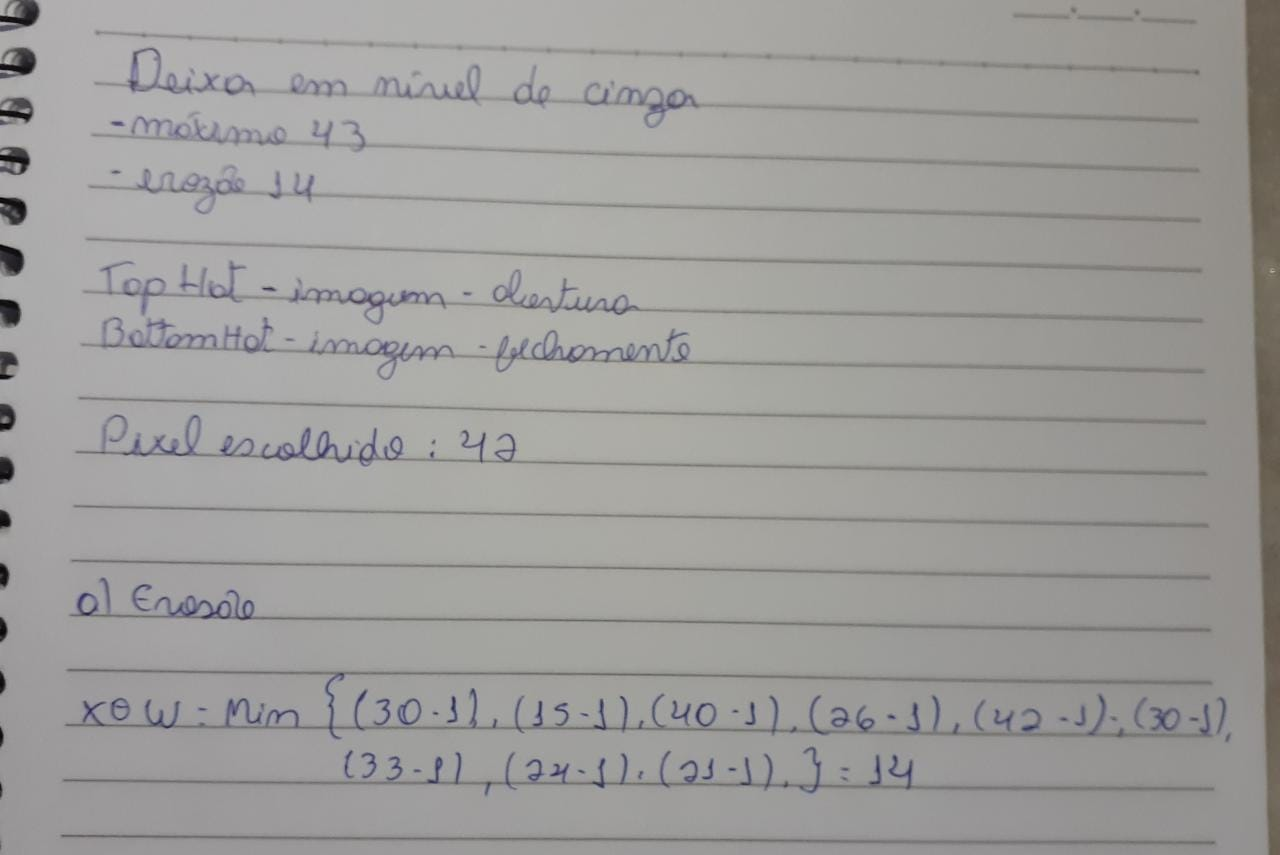 Deixa em nível de cinza
-máximo 43
-erozão 14
Top Hat - imagem - abertura
BottomHat - imagem - fechamento
Pixel escolhido : 42
a) Erosão
x⊖W = Min {(30-1), (15-1), (40-1), (26-1), (42-1), (30-1),
(33-1), (24-1), (21-1), } = 14